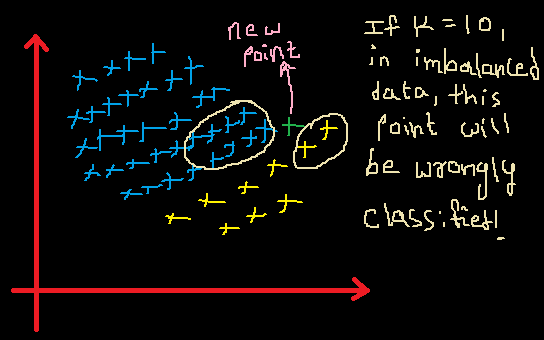 new
point
If K = 10,
in imbalanced
data, this
point will
be wrongly
classified!